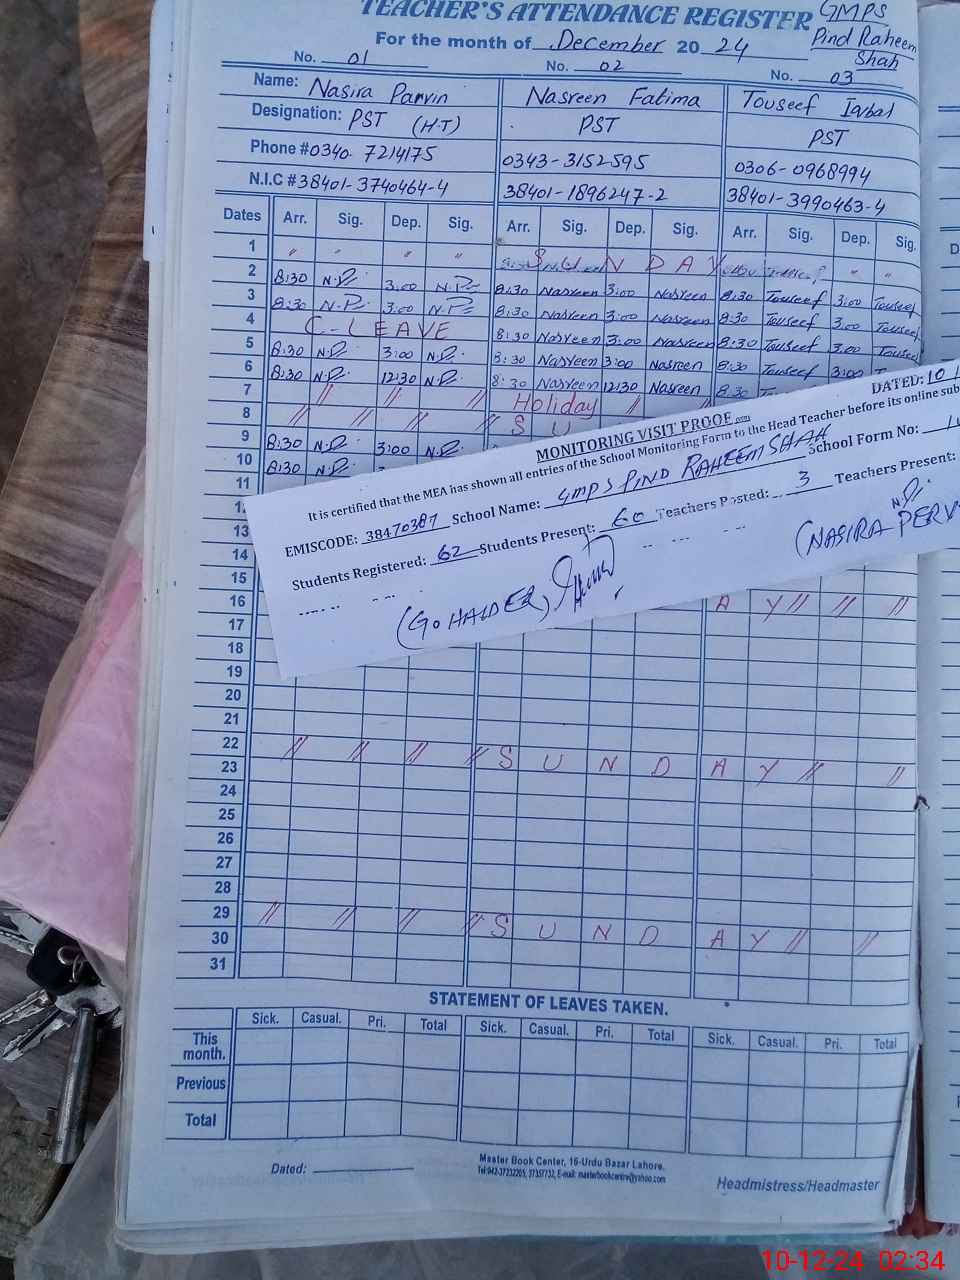 TEACHER'S ATTENDANCE REGISTER GMPS
Pind Raheem
Shah
For the month of December 2024
No. 01 No. 02 No. 03
Name: Nasira Parvin Nasreen Fatima Touseef Iqbal
Designation: PST (H.T) PST PST
Phone # 0340 7214175 0343-3152595 0306-0968994
N.I.C # 38401-3740464-4 38401-1896247-2 38401-3990463-4
Dates Arr. Sig. Dep. Sig. Arr. Sig. Dep. Sig. Arr. Sig. Dep. Sig.
1 " " " " S U N D A Y " "
2 8:30 N.P. 3:00 N.P. 8:30 Nasreen 3:00 Nasreen 8:30 Touseef 3:00 Touseef
3 8:30 N.P. 3:00 N.P. 8:30 Nasreen 3:00 Nasreen 8:30 Touseef 3:00 Touseef
4 C-LEAVE 8:30 Nasreen 3:00 Nasreen 8:30 Touseef 3:00 Touseef
5 8:30 N.P. 3:00 N.P. 8:30 Nasreen 3:00 Nasreen 8:30 Touseef 3:00
6 8:30 N.P. 12:30 N.P. 8:30 Nasreen 12:30 Nasreen 8:30
7 " " " " Holiday " "
8 " " " " S U
9 8:30 N.P. 3:00 N.P.
10 8:30 N.P.
11
13
14
15 A Y " " "
16
17
18
19
20
21
22 " " " " S U N D A Y " "
23
24
25
26
27
28
29 " " " " S U N D A Y " "
30
31
DATED: 10
MONITORING VISIT PROOF
It is certified that the MEA has shown all entries of the School Monitoring Form to the Head Teacher before its online sub
EMISCODE: 38470387 School Name: GMPS PIND RAHEEM SHAH School Form No:
Students Registered: 62 Students Present: 60 Teachers Posted: 3 Teachers Present:
N.P.
(GO HAIDER) (NASIRA PERV
STATEMENT OF LEAVES TAKEN.
Sick. Casual. Pri. Total Sick. Casual. Pri. Total Sick. Casual. Pri. Total
This month.
Previous
Total
Dated:
Master Book Center, 16-Urdu Bazar Lahore.
Tel: 042-37232205, 37357732, E-mail: masterbookcentre@yahoo.com
Headmistress/Headmaster
10-12-24 02:34